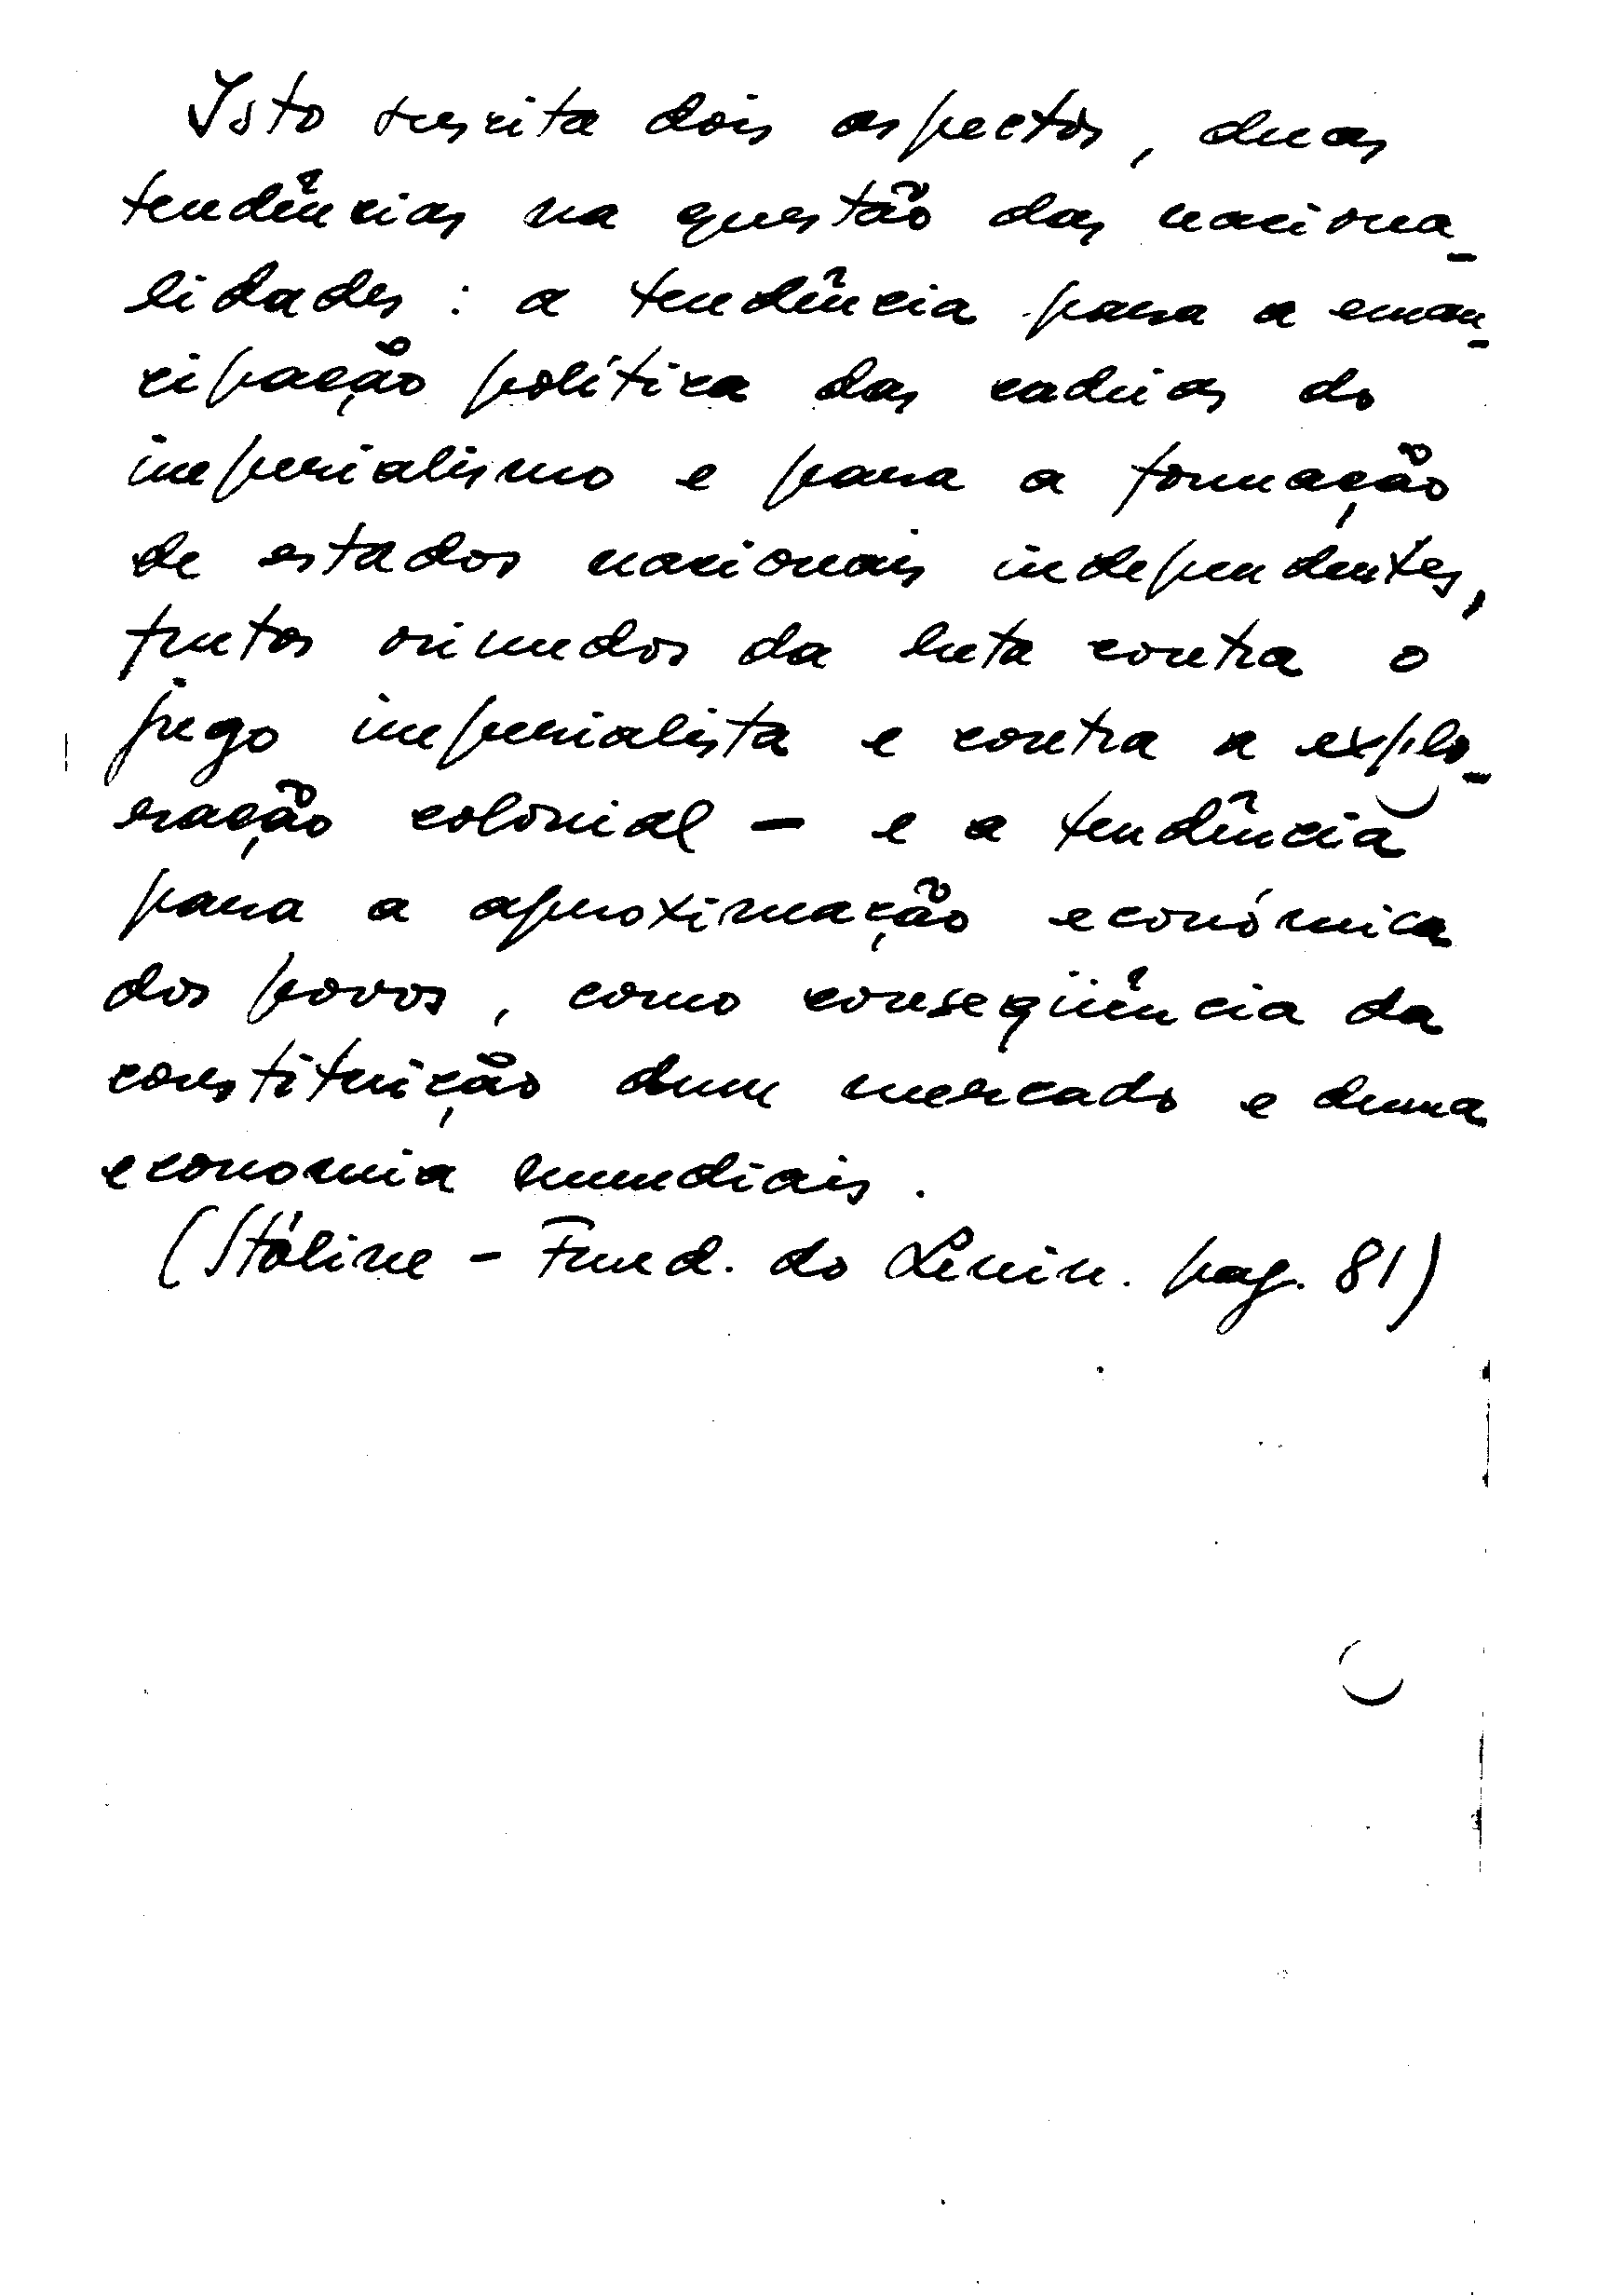 Isto suscita dois aspectos, duas
tendências na questão das naciona-
lidades: a tendência para a eman-
cipação política das cadeias do
imperialismo e para a formação
de estados nacionais independentes,
frutos oriundos da luta contra o
jugo imperialista e contra a explo-
ração colonial - e a tendência
para a aproximação económica
dos povos, como conseqüência da
constituição dum mercado e duma
economia mundiais.
(Stáline - Fund. do Lenin. pag. 81)